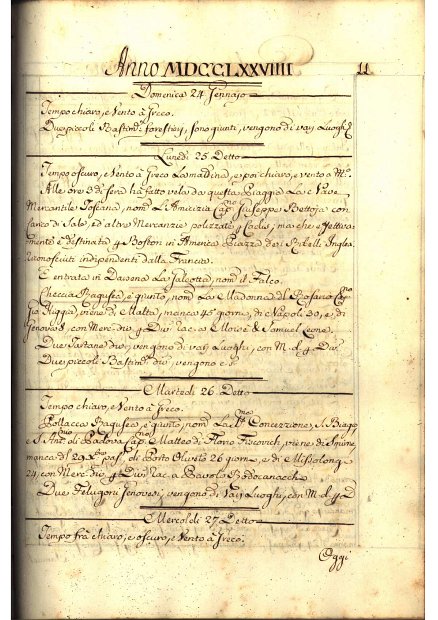 Anno MDCCLXXVIIII 11
Domenica 24 Gennajo
Tempo chiaro, e Vento à Greco.
Due piccoli Bastim.ti forestieri, sono giunti, vengono di varj Luoghi
Lunedì 25 Detto
Tempo oscuro, e Vento à Greco La mattina, e poi chiaro, e vento a
Alle ore 2 di sera hà fatto vela da questa Piaggia La Nave
Mercantile Toscana, nom. L'Amicizia Cap.no Giuseppe Bettoja con
carico di Sale, ed altre Mercanzie polizzate p Cadice, ma che effettiva
mente è destinata p Boston in America Piazza dei Ribelli Inglesi
riconosciuti indipendenti dalla Francia.
È entrata in Darsena La Galeotta, nom. il Falco.
Checcia Ragusea, è giunta, nom. La Madonna del Rosario Cap.no
viene di Malta, manca 45 giorni, di Napoli 20, e di
Genova 8, con Merc. div. p Div. rac. a Moise & Samuel Leone.
Due Tartane div. vengono di varj Luoghi, con M. d. p Div.
Due piccoli Bastim.ti div. vengono e s.
Martedì 26 Detto
Tempo chiaro, e Vento à Greco.
Pollacca Ragusea, è giunta, nom. La Concezzione, S. Biagio
e S. Ant. di Padova Cap.no Matteo di Florio viene di Smirne,
manca dal 29 pas. di Porto Oliveto 26 giorni, e di Missolongi
24, con Merc. div. p Div. rac. a Pavolo Rodocanacchi
Due Felugoni Genovesi, vengono di Varj Luoghi, con M. d. p D.
Mercoledì 27 Detto
Tempo frà chiaro, e oscuro, e Vento à Greco.
Oggi